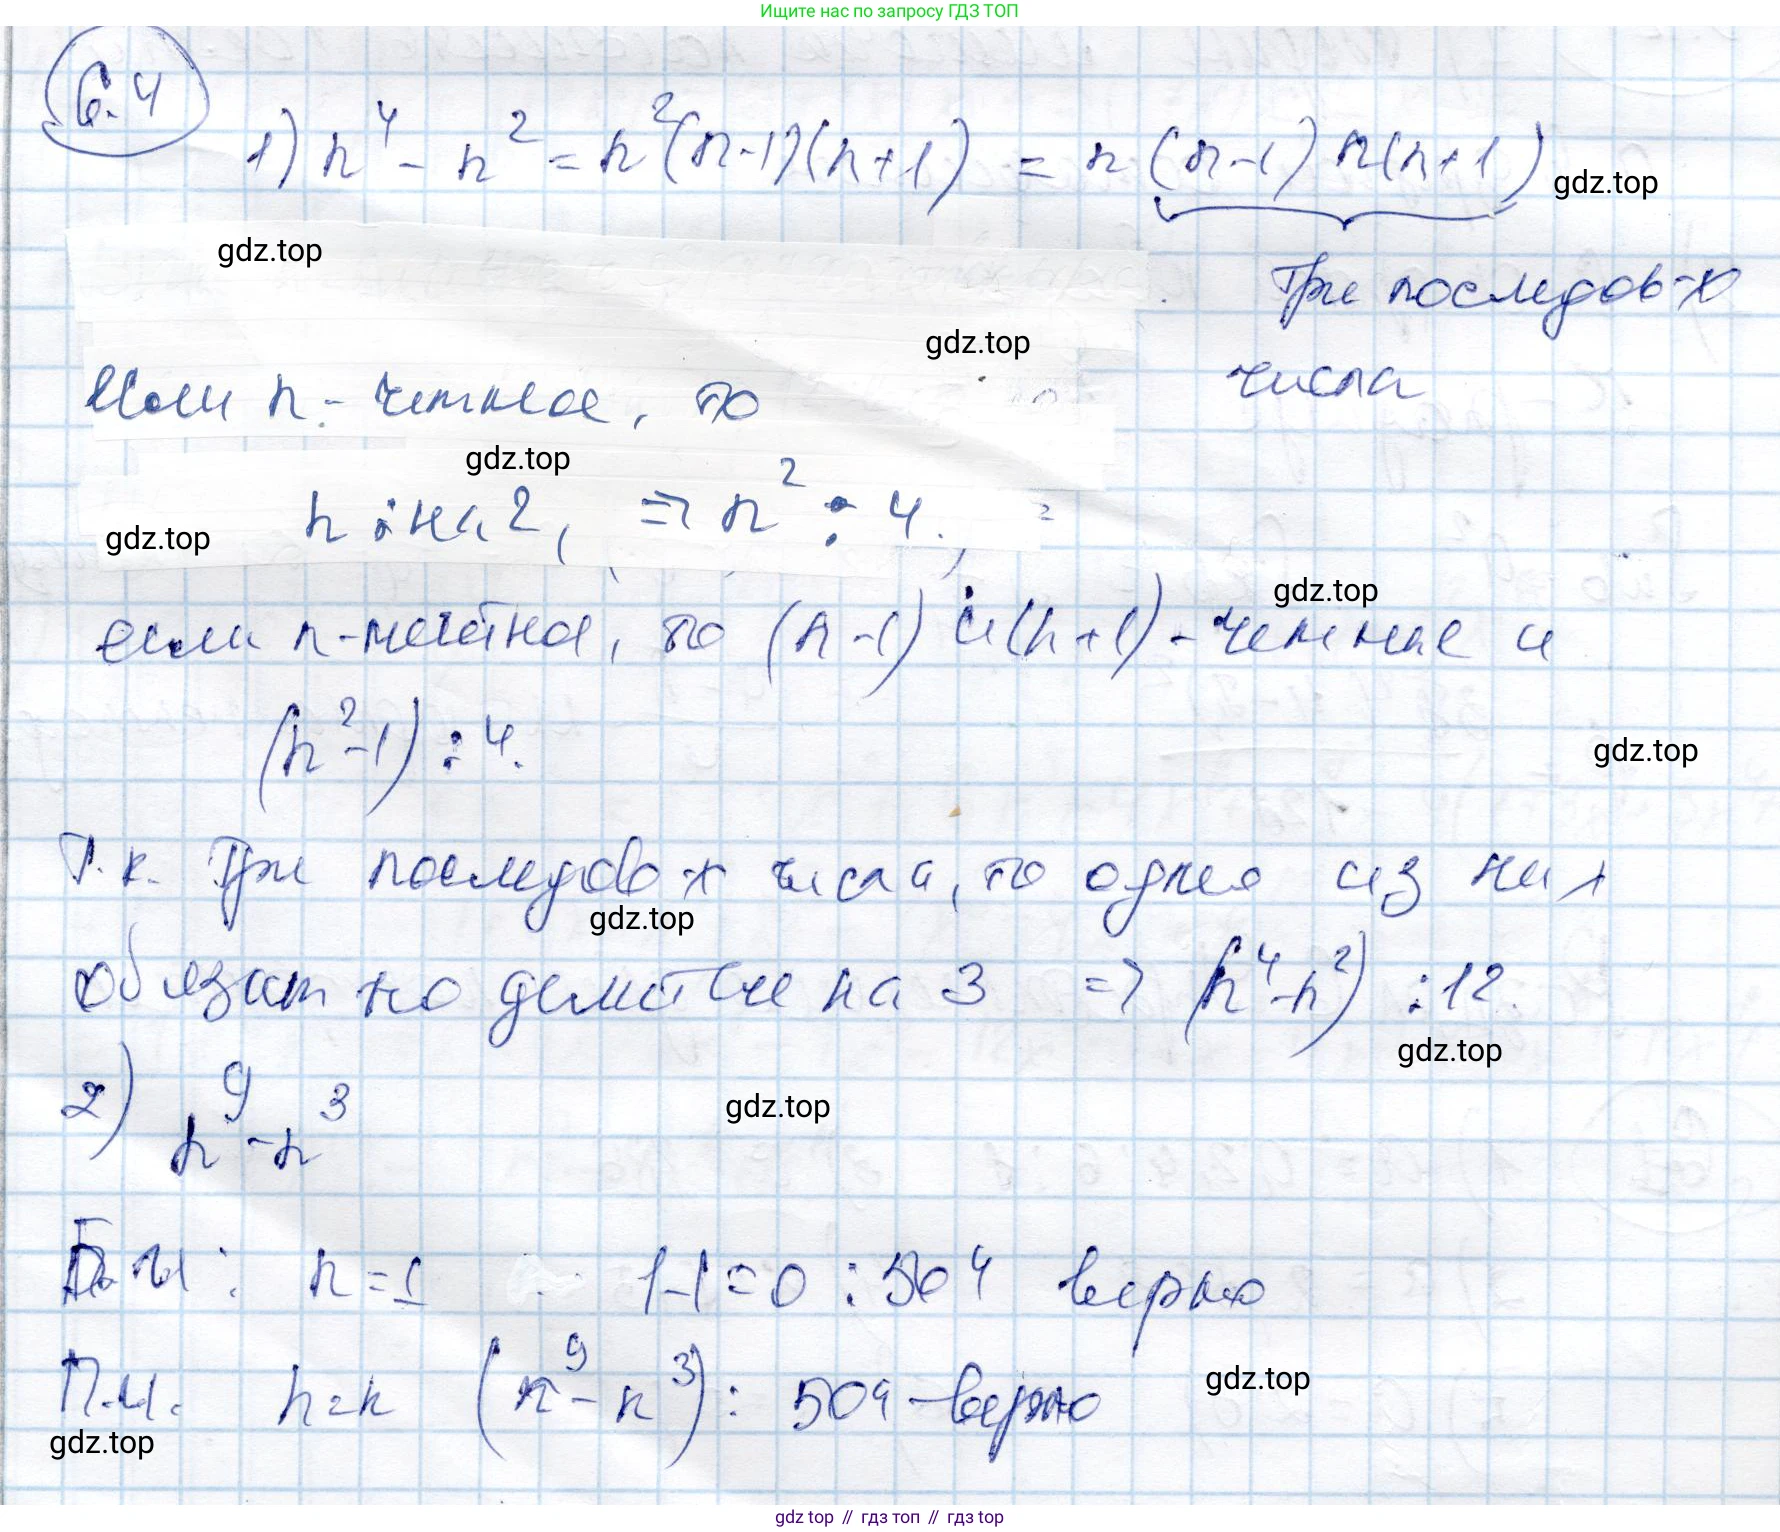 Ищите нас по запросу ГДЗ ТОП
6.4
1) n⁴ - n² = n²(n-1)(n+1) = n(n-1)n(n+1)
gdz.top
gdz.top
Три последов-х
gdz.top
числа
Если n - четное, то
gdz.top
n ⋮ на 2, => n² ⋮ 4.
gdz.top
gdz.top
если n - нечетное, то (n-1) и (n+1) - четные и
(n²-1) ⋮ 4.
gdz.top
Т.к. Три последов-х числа, то одно из них
gdz.top
обязат-но делится на 3 => (n⁴-n²) ⋮ 12.
gdz.top
2) n⁹ - n³
gdz.top
Б.И: n=1 1-1=0 ⋮ 504 верно
П.И. n=k (k⁹ - k³) ⋮ 504 - верно
gdz.top
gdz.top
gdz top // гдз топ // гдз top